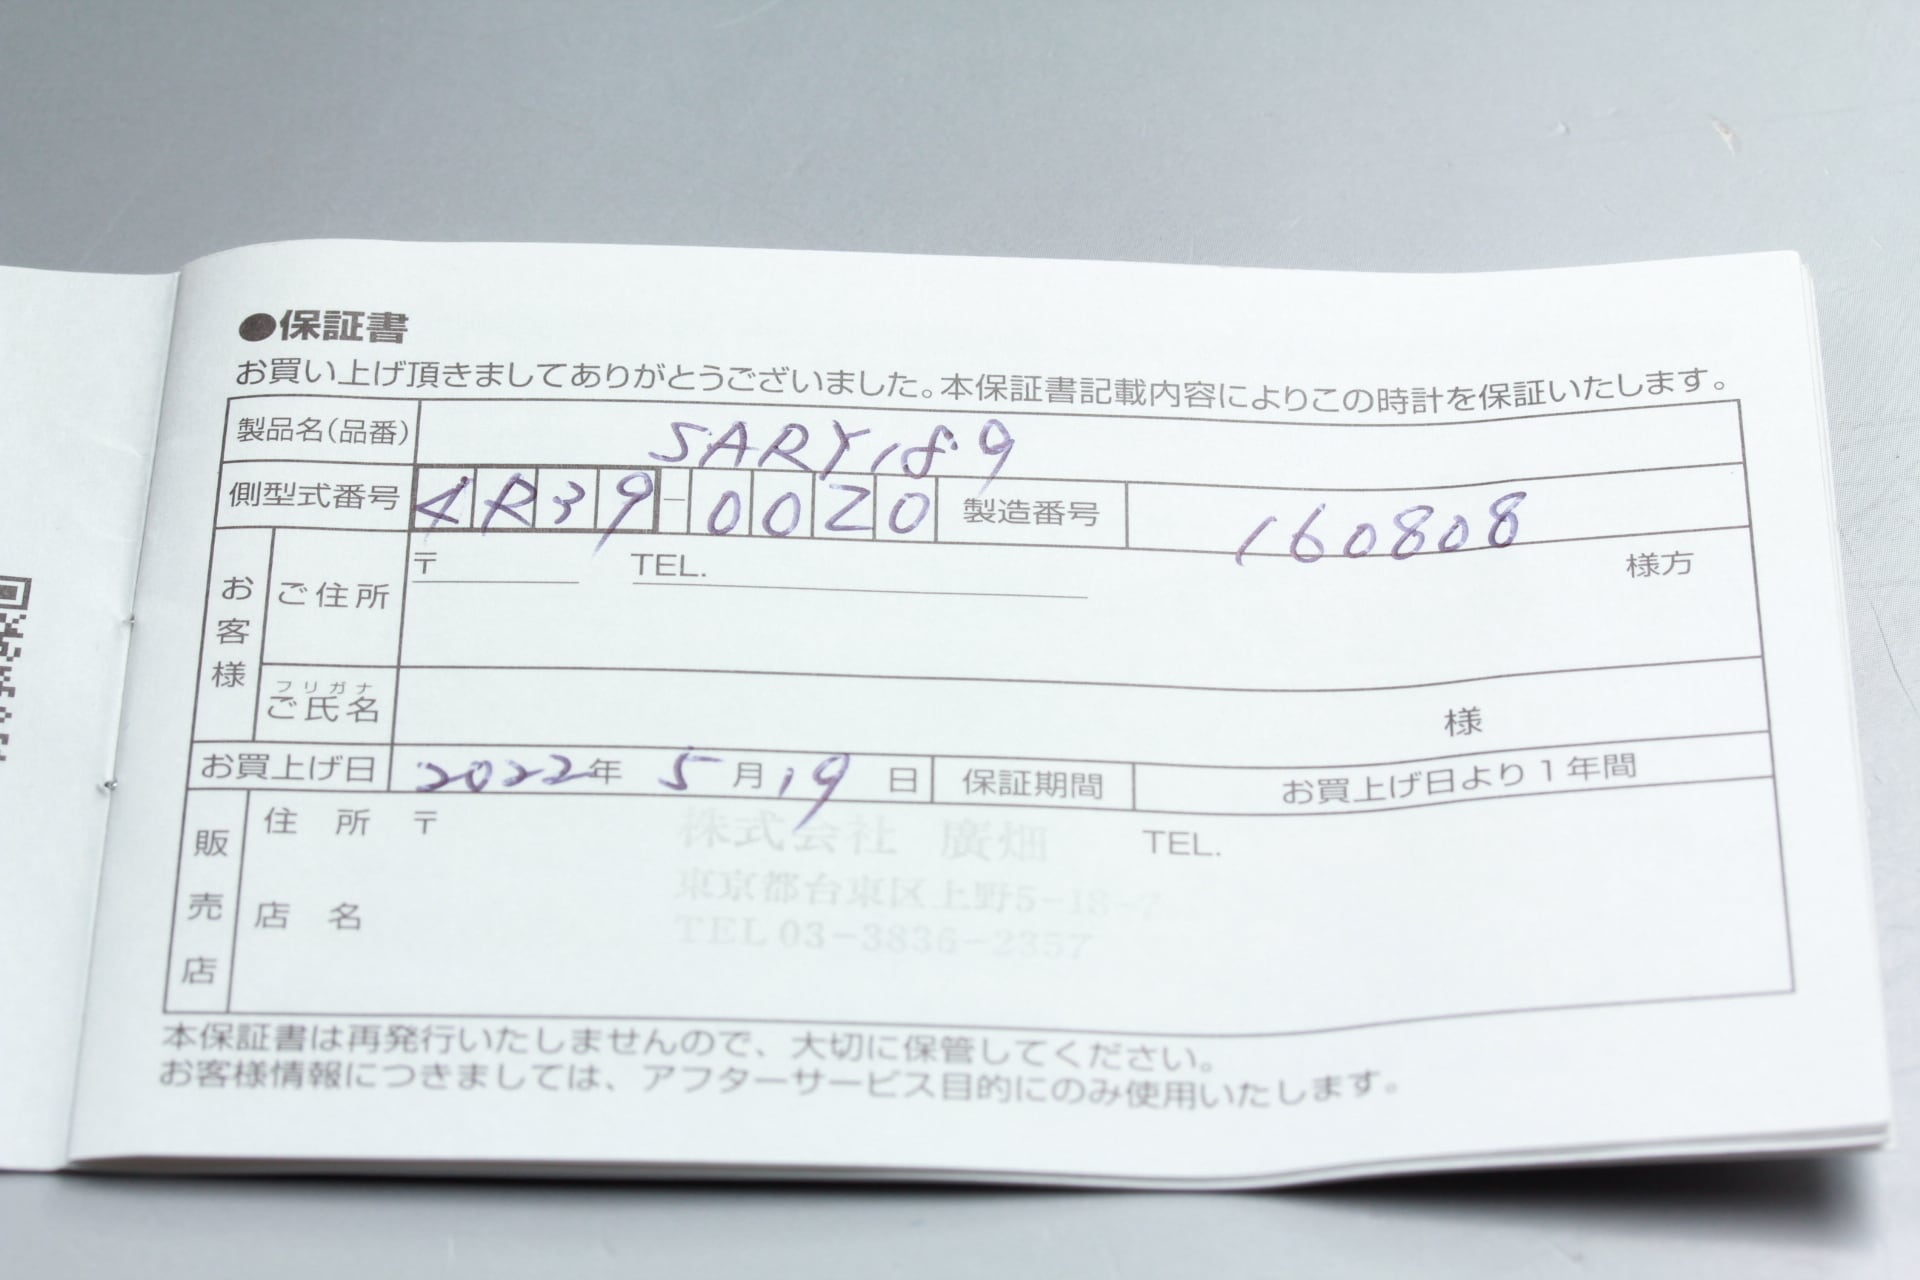 ●保証書
お買い上げ頂きましてありがとうございました。本保証書記載内容によりこの時計を保証いたします。
製品名(品番) SARY189
側型式番号 4R39-0020 製造番号 160808
お客様 ご住所 〒 TEL. 様方
フリガナ
ご氏名 様
お買上げ日 2022年 5月19日 保証期間 お買上げ日より1年間
販売店 住所 〒 TEL.
株式会社 廣畑
東京都台東区上野5-18-7
店名
TEL 03-3836-2357
本保証書は再発行いたしませんので、大切に保管してください。
お客様情報につきましては、アフターサービス目的にのみ使用いたします。